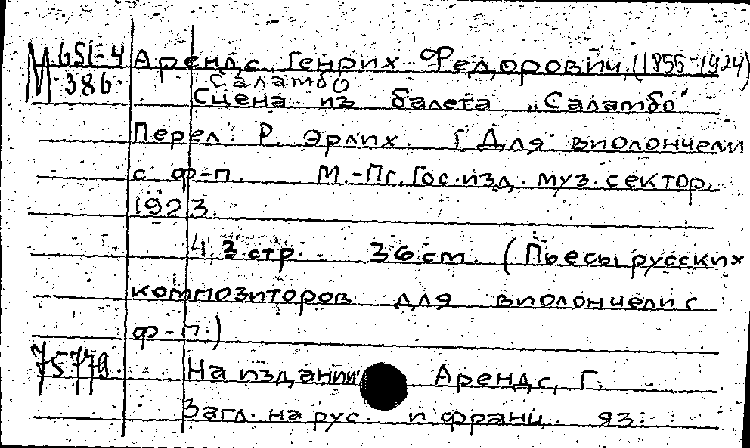 М 651-4 Арендс, Генрих Федорович, (1855-1924)
386 Саламбо
Сцена из балета „Саламбо"
Перел. Р. Эрлих. [Для виолончели
с ф-п. М.-Пг. Гос. изд. муз. сектор.
1923.
4, 3 стр. 36 cm. (Пьесы русских
композиторов для виолончели с
ф-п.)
75779. На издании Арендс, Г.
Загл. на рус. и франц. яз.